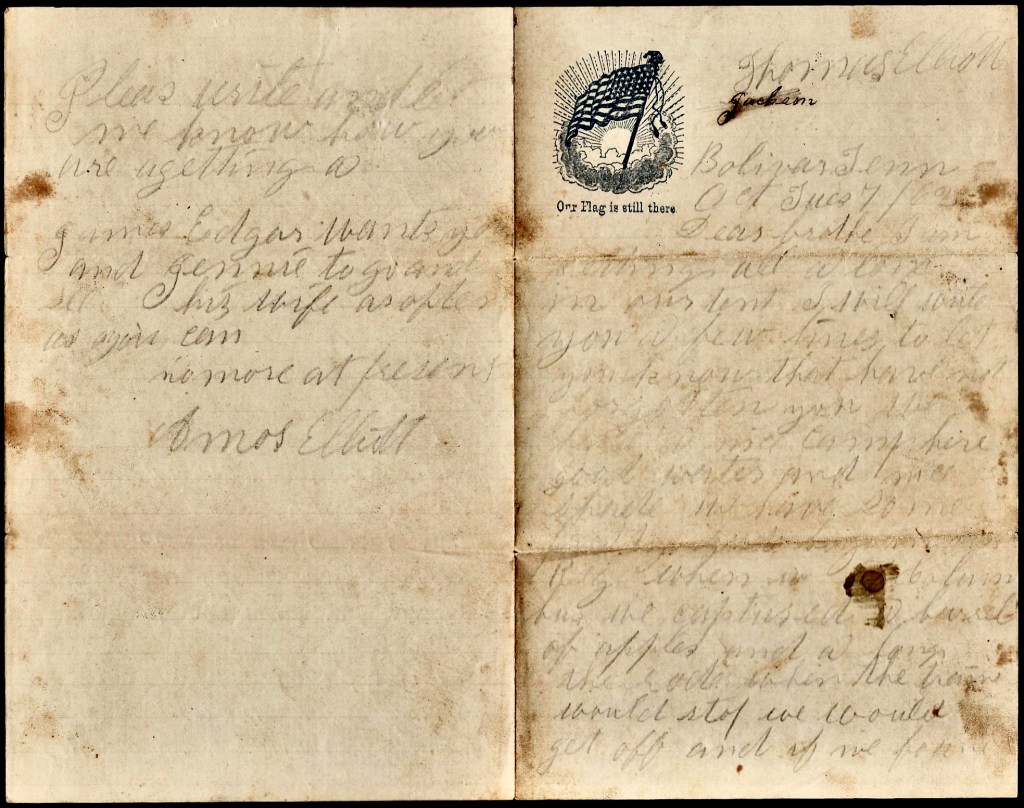 Pleas write and let
me know how you
are agetting a
James Edgar wants yo
and Jennie to go and
se his wife as often
as you can
no more at presens
Amos Elliott
Thomas Elliott
Jackson
Our Flag is still there
Bolivar Tenn
Oct Tues 7 / 62
Dear brothe I am
all a lone
in our tent I will write
you a few lines to let
you know that have not
forgotten you we
have a nice camp here
good water and nice
shade we have some
when we Colum
bus we captured a barrel
of apples and a long
the rode when the train
would stop we would
get off and if we found